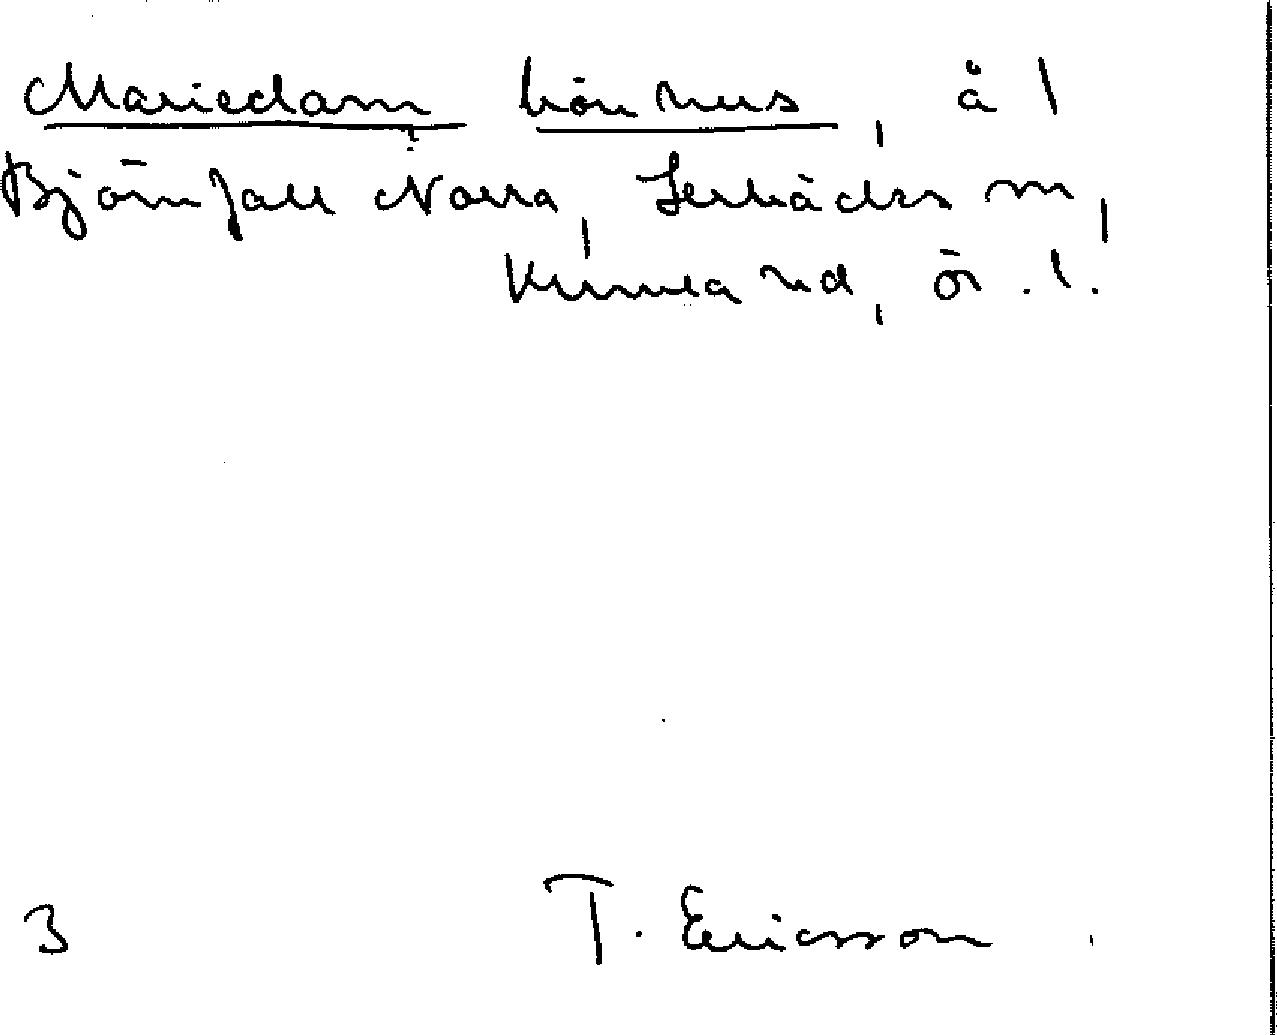 Mariedam bönhus, å l
Björnfall Norra, Lerbäcks sn,
Kumla hd, ör. l.
3 T. Ericsson